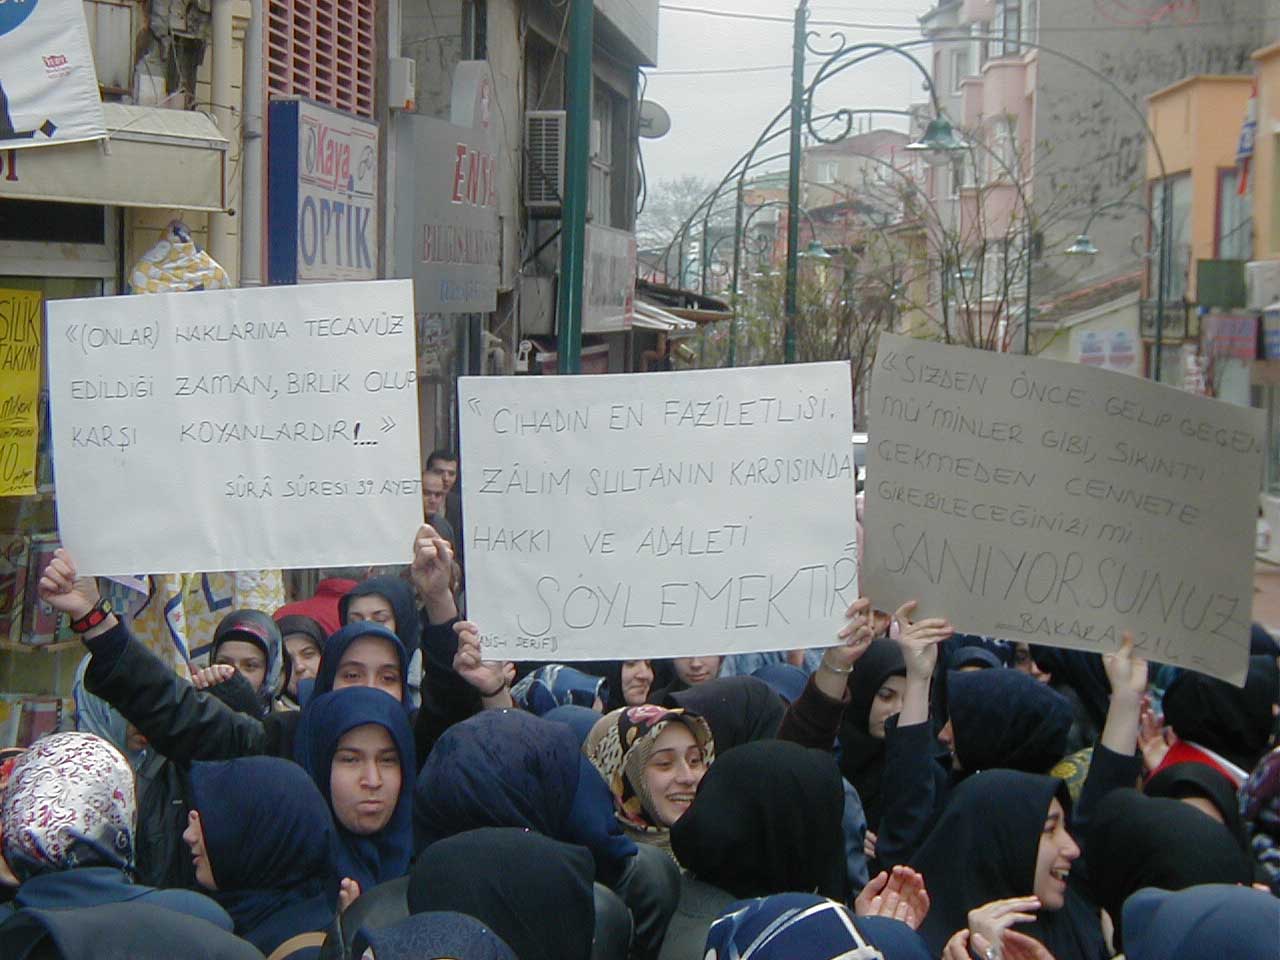 «(ONLAR) HAKLARINA TECAVÜZ
EDİLDİĞİ ZAMAN, BİRLİK OLUP
KARŞI KOYANLARDIR!...»
ŞÛRÂ SÛRESİ 39. AYET
"CİHADIN EN FAZÎLETLİSİ,
ZÂLİM SULTANIN KARŞISINDA
HAKKI VE ADALETİ
SÖYLEMEKTİR
ŞERİF))
«SİZDEN ÖNCE GELİP GEÇEN
MÜ'MİNLER GİBİ, SIKINTI
ÇEKMEDEN CENNETE
GİREBİLECEĞİNİZİ Mİ
SANIYORSUNUZ
BAKARA 214
Kaya
OPTİK
ENSA
10